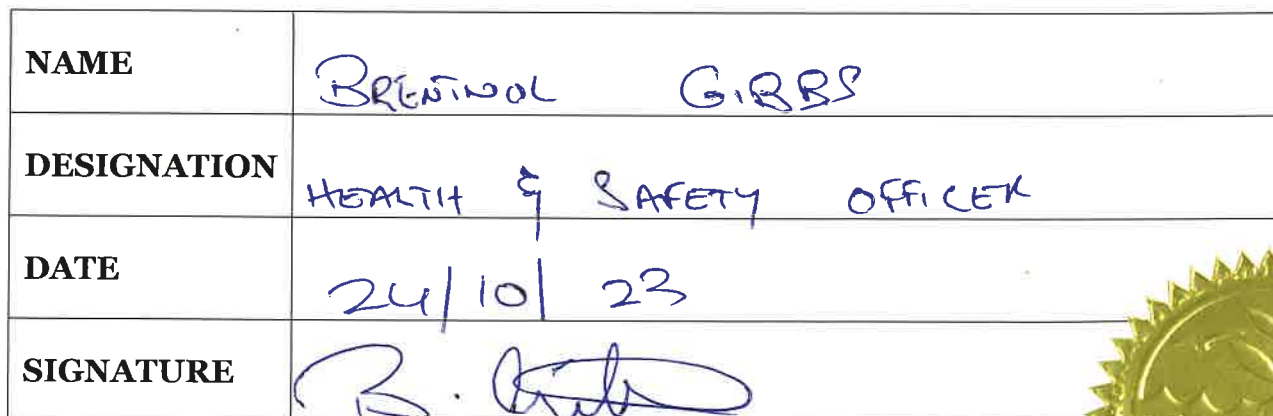 NAME BRENTNOL GIBBS
DESIGNATION HEALTH & SAFETY OFFICER
DATE 24/10/23
SIGNATURE B. Gibbs